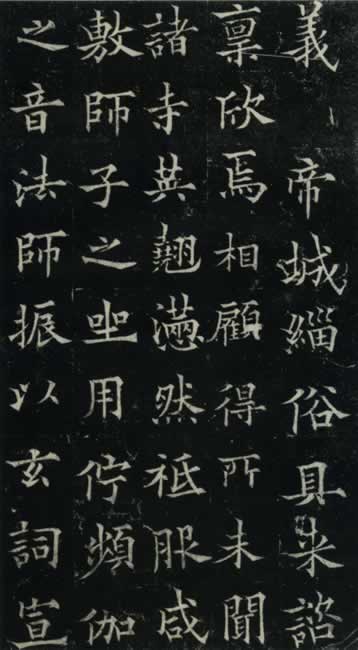 義　帝城緇俗具来諮
禀欣焉相顧得所未聞
諸寺英翹懣然祇服咸
敷師子之坐用佇頻伽
之音法師振以玄詞宣